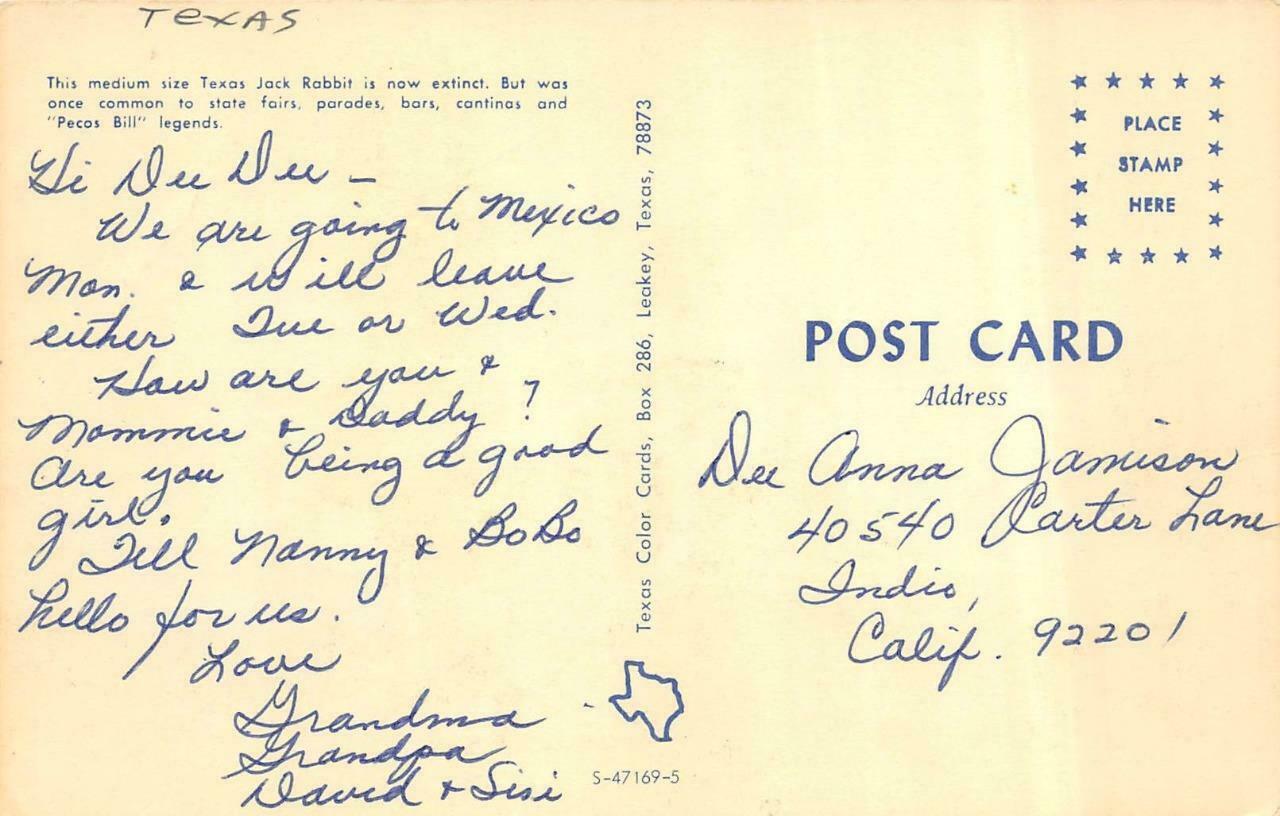 TEXAS
This medium size Texas Jack Rabbit is now extinct. But was
once common to state fairs, parades, bars, cantinas and
"Pecos Bill" legends.
Hi Dee Dee –
We are going to Mexico
Mon. & will leave
either Tue or Wed.
How are you &
Mommie & Daddy?
Are you being a good
girl.
Tell Nanny & BoBo
hello for us.
Love
Grandma
Grandpa
David & Sisi
Texas Color Cards, Box 286, Leakey, Texas, 78873
S-47169-5
PLACE
STAMP
HERE
POST CARD
Address
Dee Anna Jamison
40540 Carter Lane
Indio,
Calif. 92201